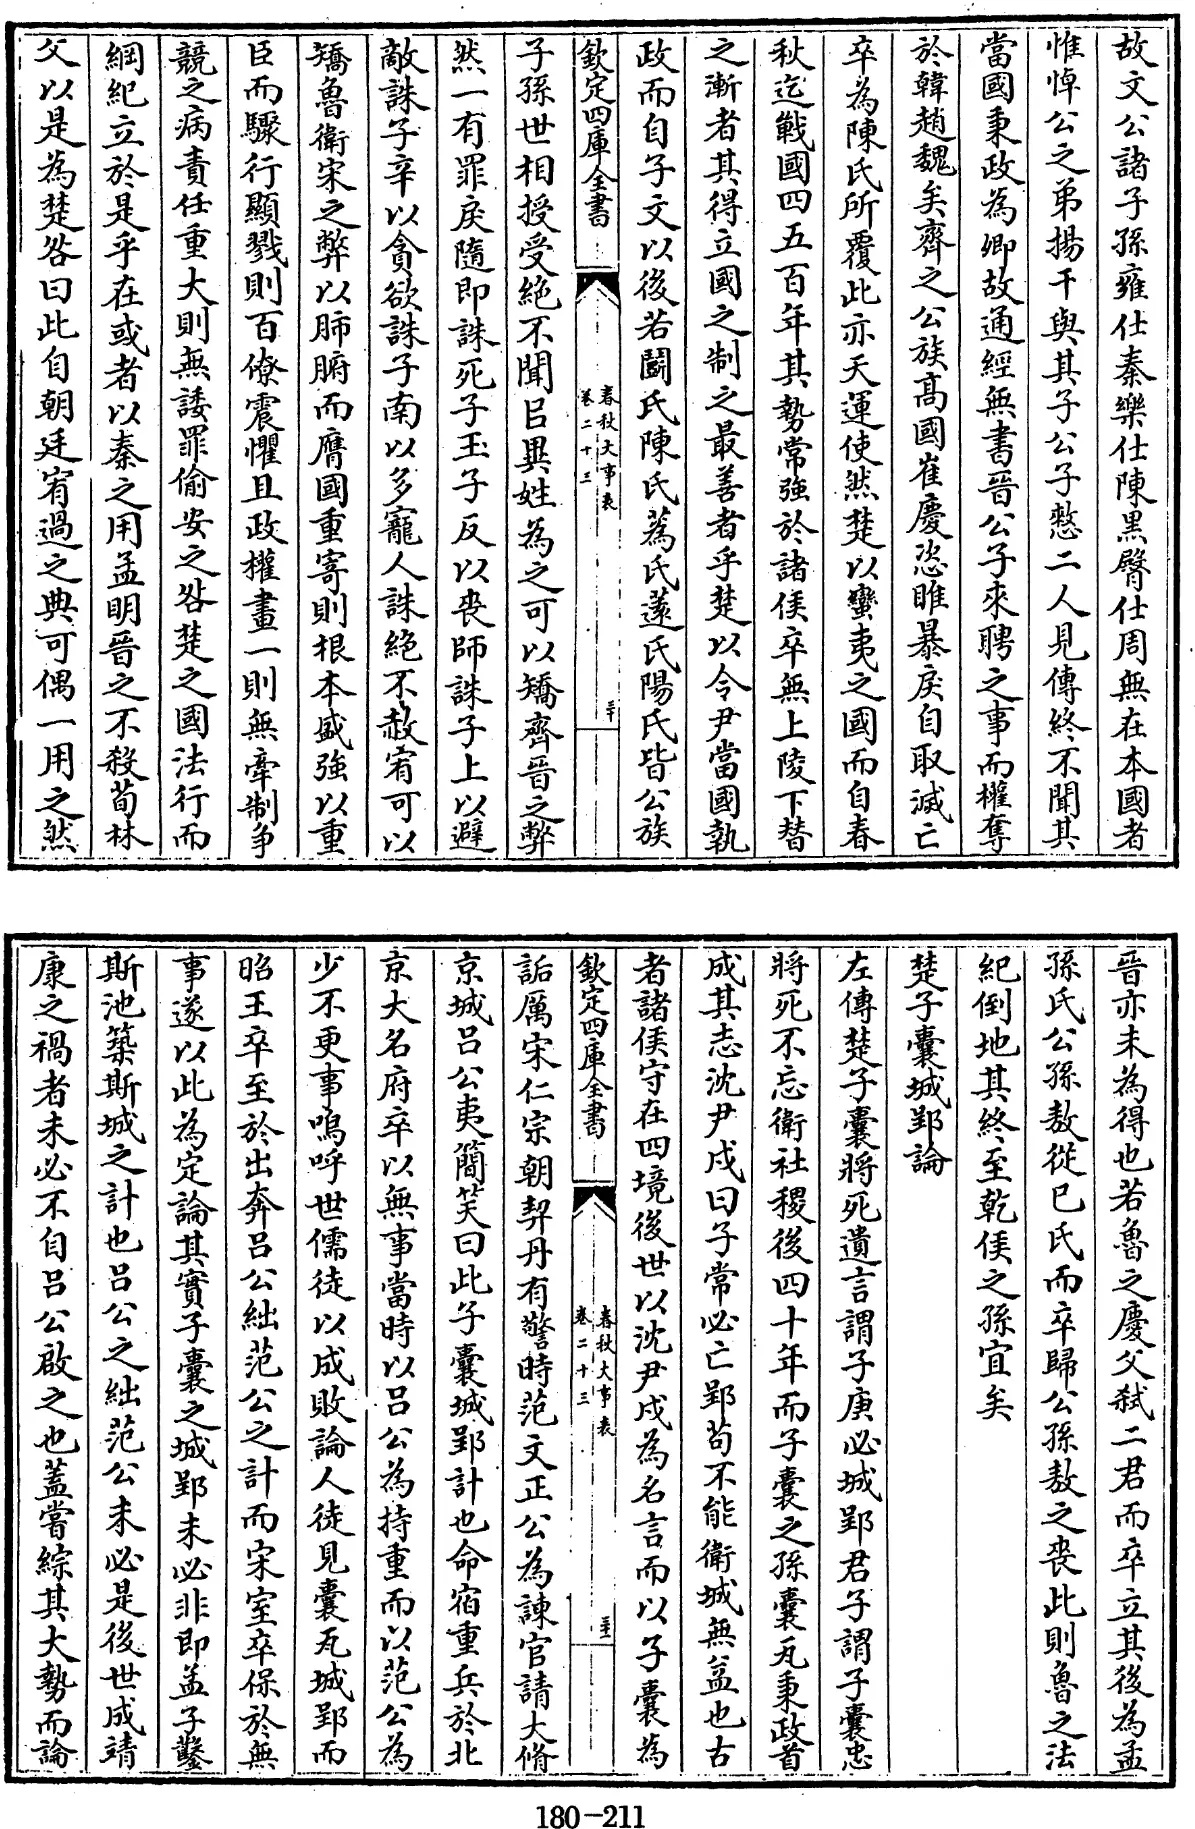 故文公諸子孫雍仕秦樂仕陳黒臀仕周無在本國者
惟悼公之弟揚干與其子公子憖二人見傳終不聞其
當國秉政為卿故通經無書晉公子來聘之事而權奪
於韓趙魏矣齊之公族髙國崔慶恣睢暴戾自取滅亡
卒為陳氏所覆此亦天運使然楚以蠻夷之國而自春
秋迄戰國四五百年其勢常強於諸侯卒無上陵下替
之漸者其得立國之制之最善者乎楚以令尹當國執
政而自子文以後若鬬氏陳氏蒍氏薳氏陽氏皆公族
欽定四庫全書
春秋大事表
卷二十三
三十
子孫世相授受絶不聞以異姓為之可以矯齊晉之弊
然一有罪戾隨即誅死子玉子反以喪師誅子上以避
敵誅子辛以貪欲誅子南以多寵人誅絶不赦宥可以
矯魯衛宋之弊以肺腑而膺國重寄則根本盛強以重
臣而驟行顯戮則百僚震懼且政權畫一則無牽制争
競之病責任重大則無諉罪偷安之咎楚之國法行而
綱紀立於是乎在或者以秦之用孟明晉之不殺荀林
父以是為楚咎曰此自朝廷宥過之典可偶一用之然
晉亦未為得也若魯之慶父弑二君而卒立其後為孟
孫氏公孫敖從已氏而卒歸公孫敖之喪此則魯之法
紀倒地其終至乾侯之孫宜矣
楚子囊城郢論
左傳楚子囊將死遺言謂子庚必城郢君子謂子囊忠
將死不忘衛社稷後四十年而子囊之孫囊瓦秉政首
成其志沈尹戌曰子常必亡郢苟不能衛城無益也古
者諸侯守在四境後世以沈尹戌為名言而以子囊為
欽定四庫全書
春秋大事表
卷二十三
三十一
詬厲宋仁宗朝契丹有警時范文正公為諫官請大脩
京城吕公夷簡笑曰此子囊城郢計也命宿重兵於北
京大名府卒以無事當時以吕公為持重而以范公為
少不更事嗚呼世儒徒以成敗論人徒見囊瓦城郢而
昭王卒至於出奔吕公絀范公之計而宋室卒保於無
事遂以此為定論其實子囊之城郢未必非即孟子鑿
斯池築斯城之計也吕公之絀范公未必是後世成靖
康之禍者未必不自吕公啟之也蓋嘗綜其大勢而論
180-211